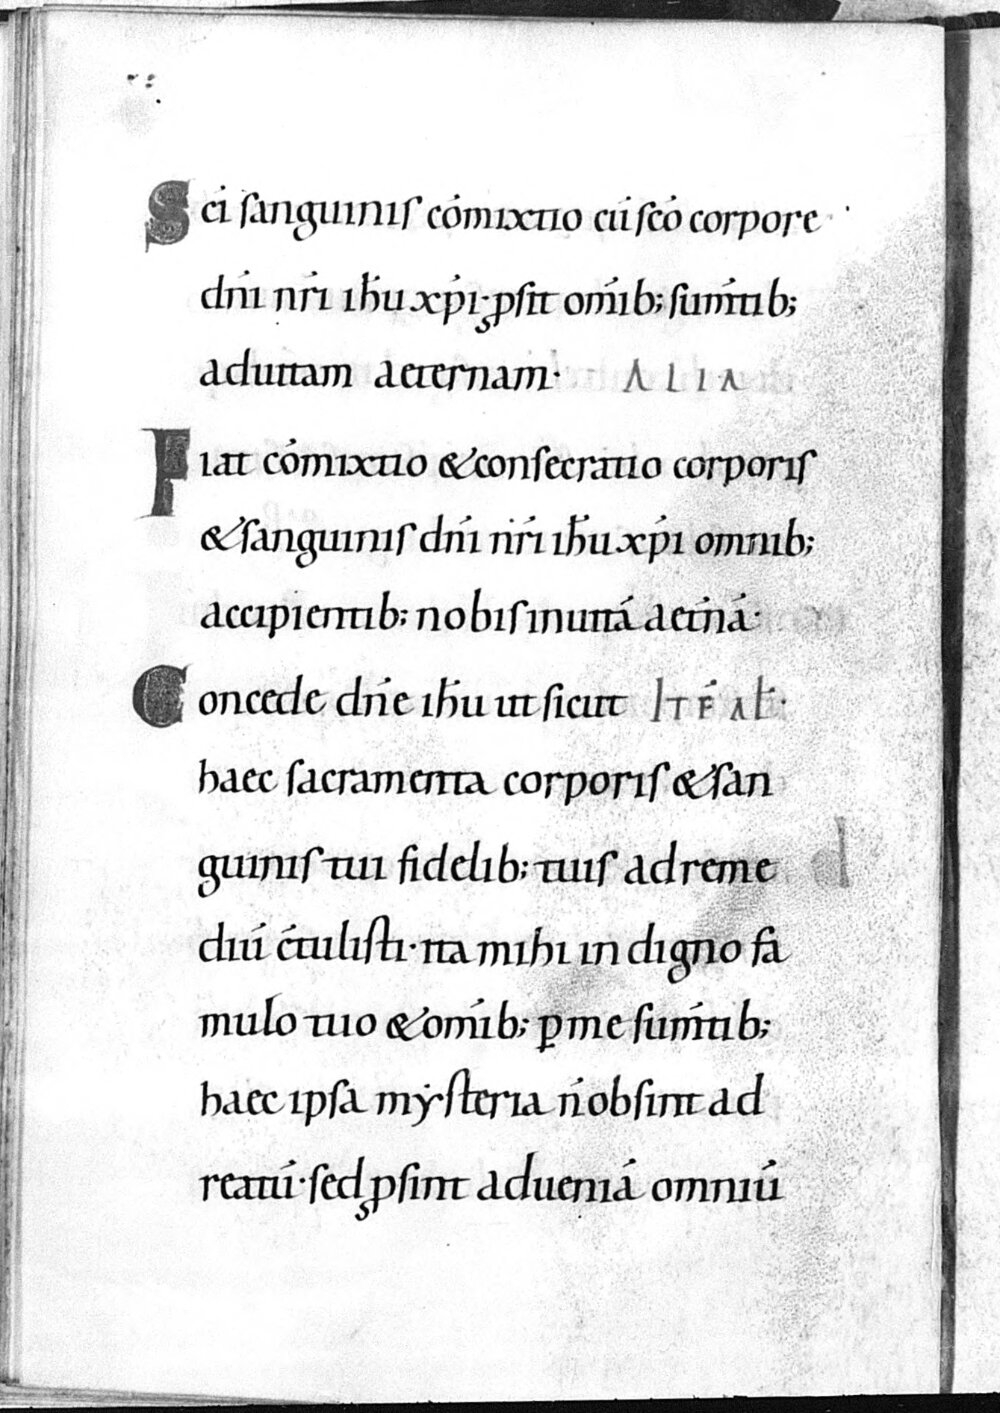 Sci sanguinis cōmixtio cū scō corpore·
dn̄i nr̄i ihū xp̄i· ꝓsit om̄ib; sum̄tib;
aduitam aeternam· ALIA
Fiat cōmixtio &consecratio corporis
&sanguinis dn̄i nr̄i ihū xp̄i omnib;
accipientib; nobis inuitā aet̄nā·
Concede dn̄e ihū ut sicut ITĒ AL̄·
haec sacramenta corporis &san
guinis tui fidelib; tuis adreme
diū c̄tulisti· ita mihi indigno fa
mulo tuo &om̄ib; ꝑme sum̄tib;
haec ipsa mẏsteria n̄ obsint ad
reatū· sed ꝓsint adueniā omniū